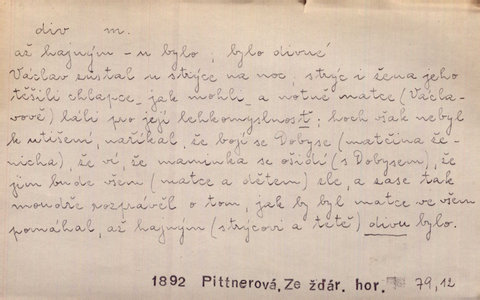 div m.
až hajným – u bylo; bylo divné
Václav zůstal u strýce na noc. strýc i žena jeho
těšili chlapce, jak mohli, a notně matce (Václa-
vově) láli pro její lehkomyslnost; hoch však nebyl
k utišení, naříkal, že bojí se Dobyse (matčina že-
nicha), že ví, že maminka se ošidí (s Dobysem), že
jim bude všem (matce a dětem) zle, a zase tak
moudře rozprávěl o tom, jak by byl matce ve všem
pomáhal, až hajným (strýcovi a tetě) divu bylo.
1892 Pittnerová, Ze žďár. hor. 79,12